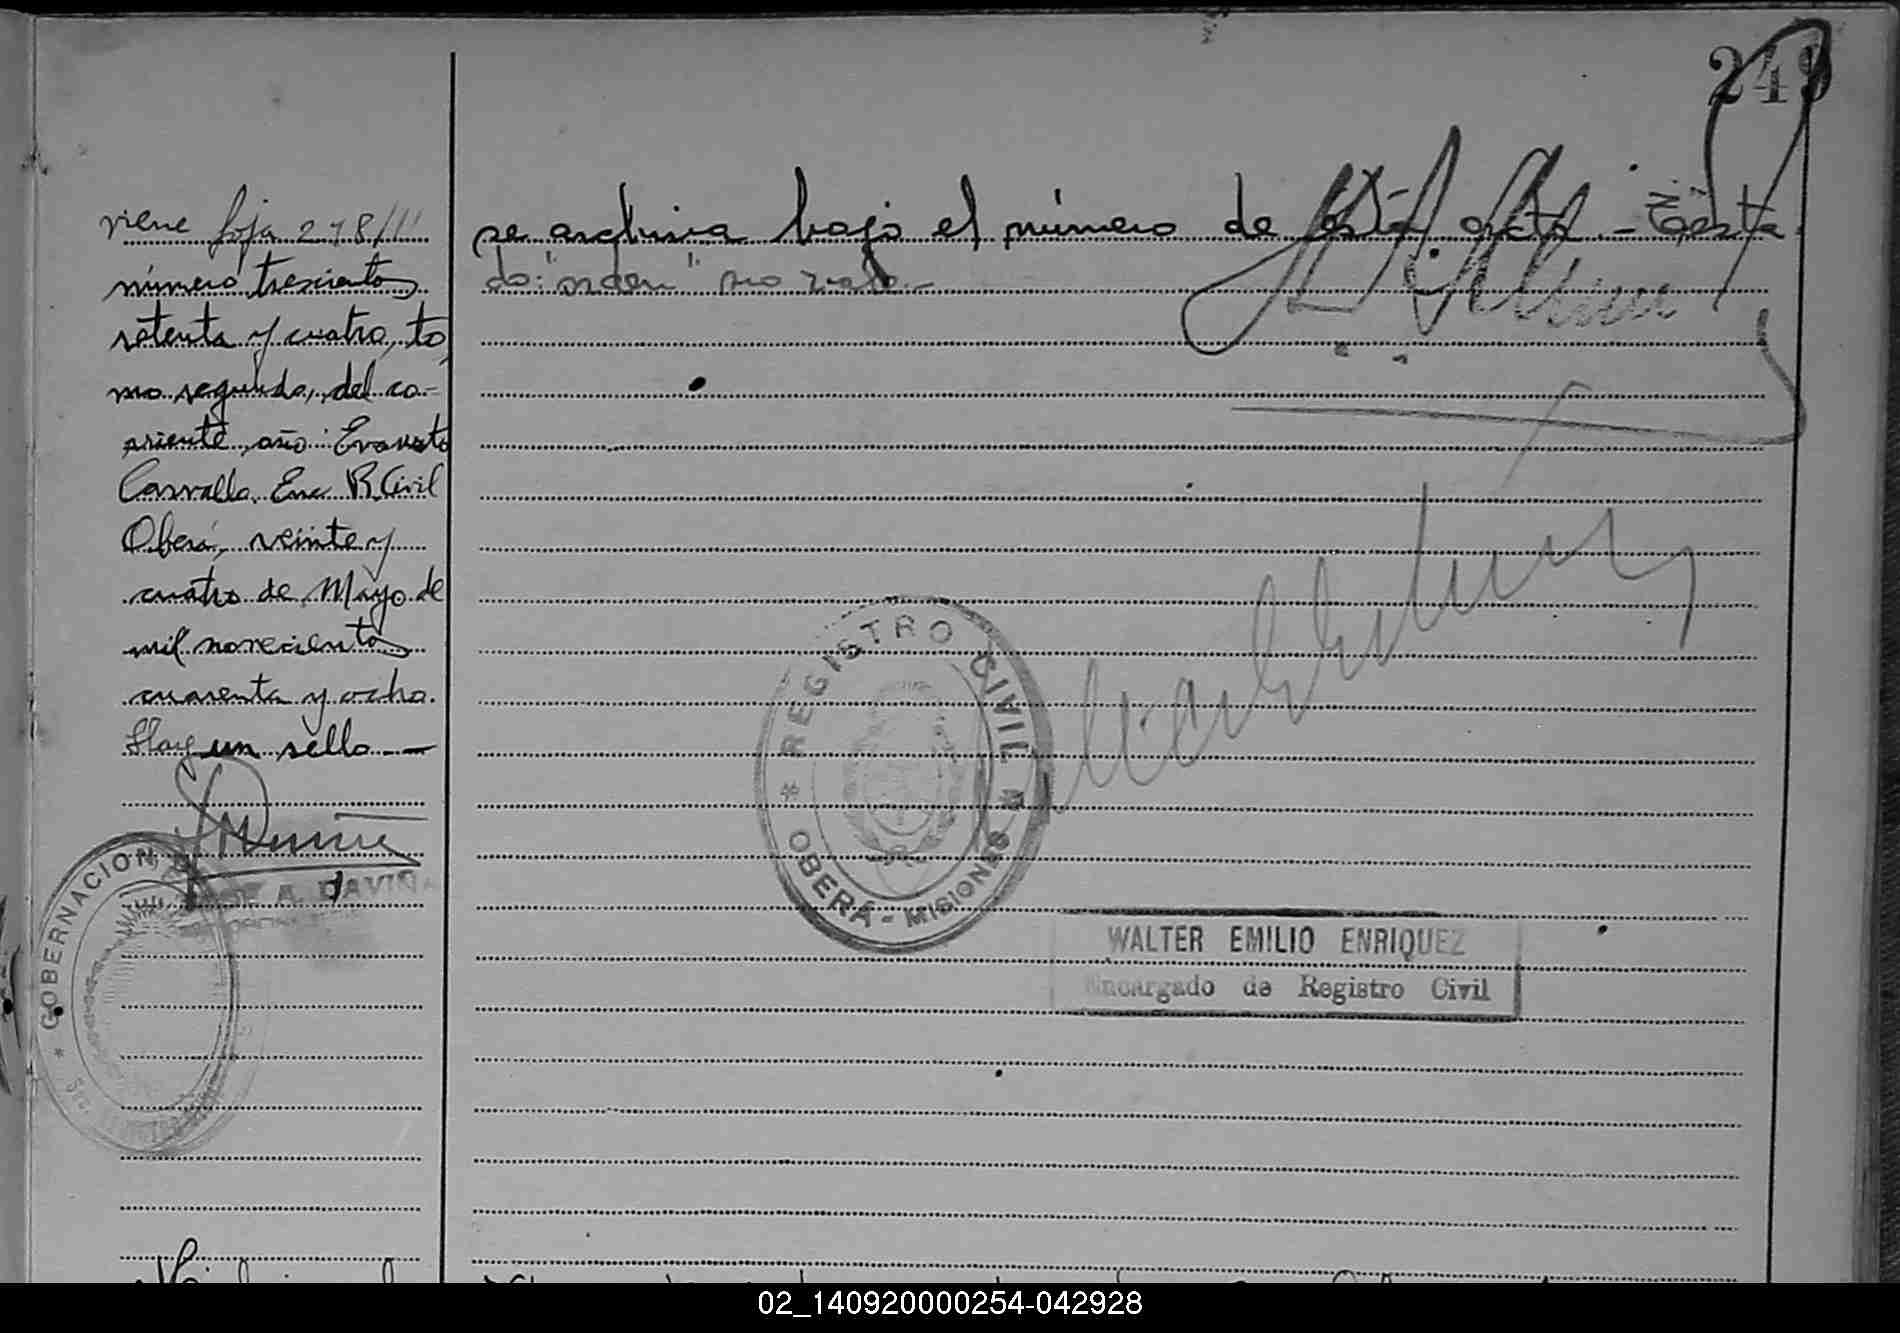 249
viene foja 278///
número trescientos
setenta y cuatro, to,
mo segundo, del co-
rriente año. Evaristo
Carvallo. Enc R. Civil
Oberá, veinte y
cuatro de Mayo de
mil novecientos
cuarenta y ocho.
Hay un sello.—
GOBERNACION
JOSE A. DAVIÑA
se archiva bajo el número de esta acta.- Testa
do: "orden" no vale.-
REGISTRO CIVIL
OBERÁ - MISIONES
WALTER EMILIO ENRIQUEZ
Encargado de Registro Civil
02_140920000254-042928